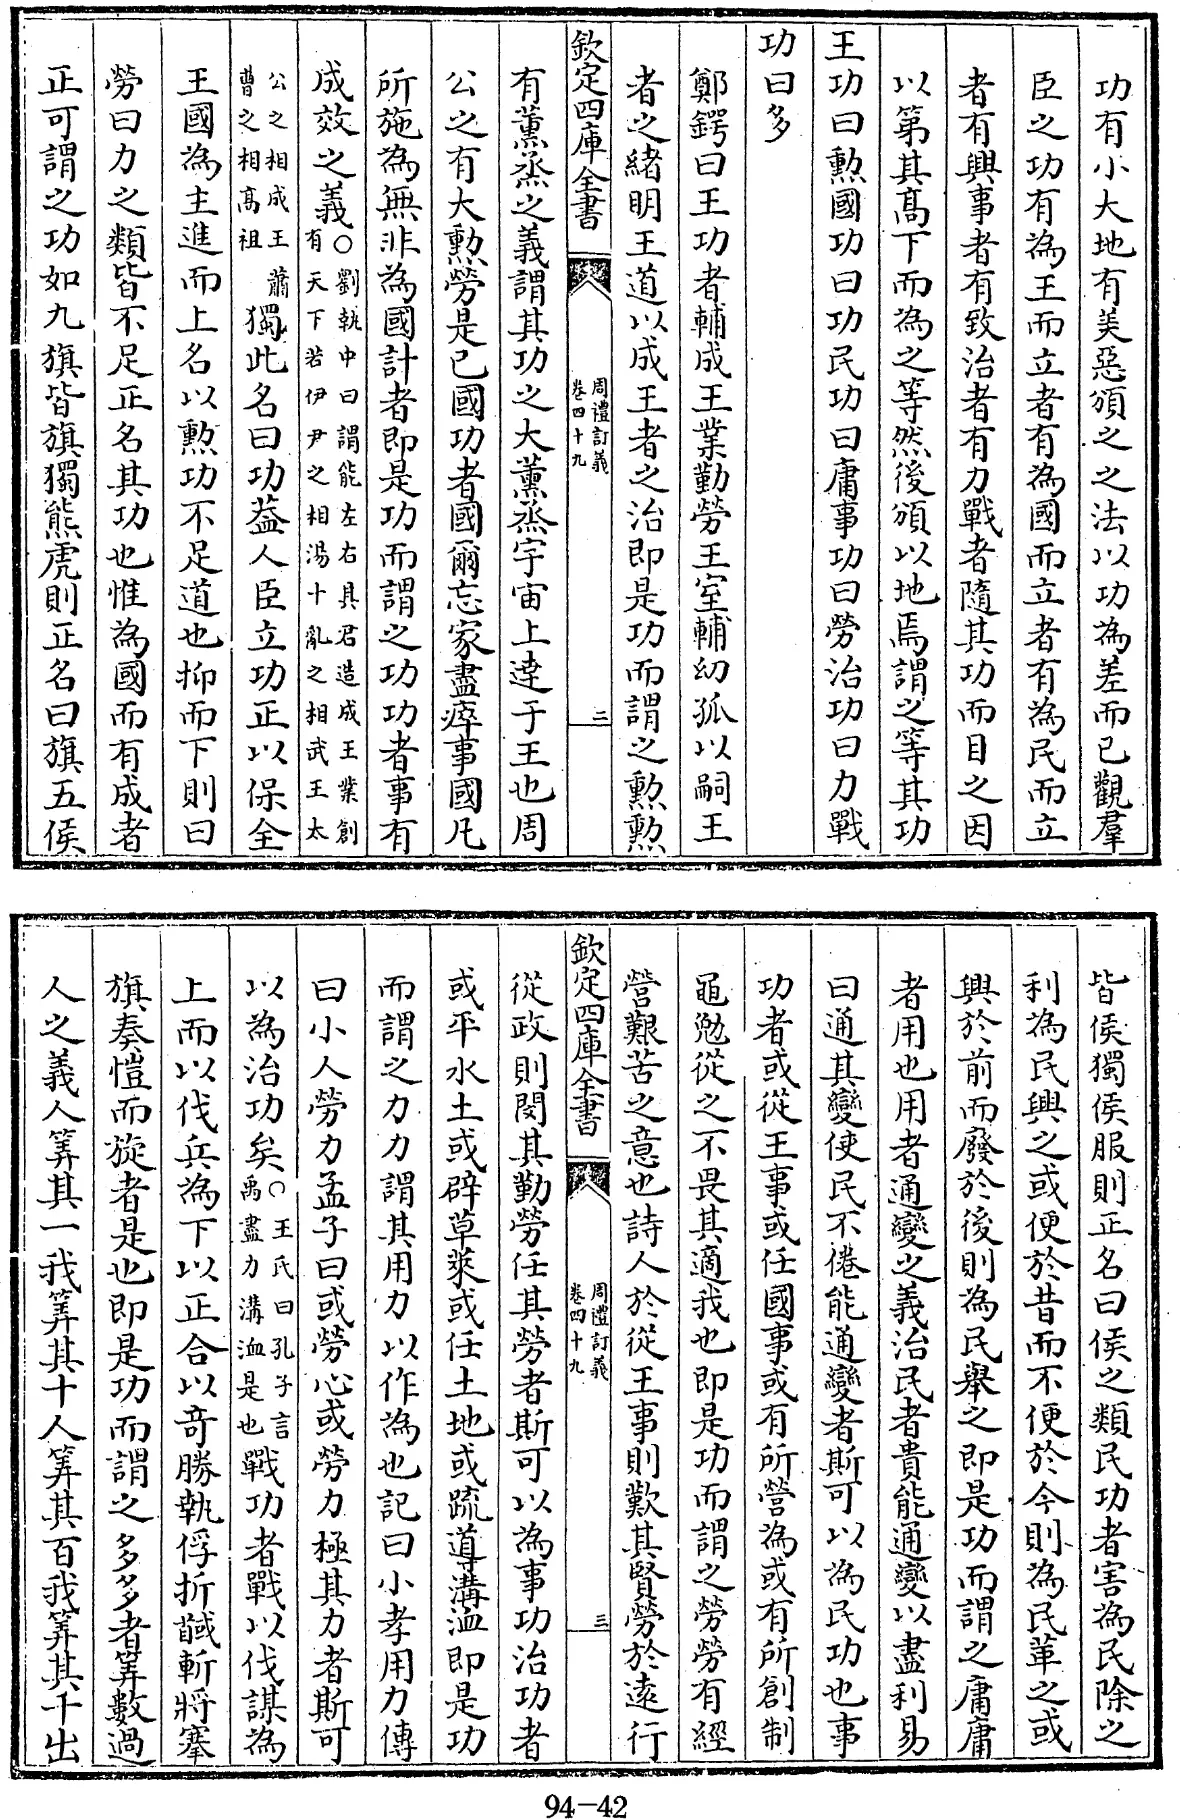 功有小大地有美惡頒之之法以功為差而已觀羣
臣之功有為王而立者有為國而立者有為民而立
者有興事者有致治者有力戰者隨其功而目之因
以第其髙下而為之等然後頒以地焉謂之等其功
王功曰勲國功曰功民功曰庸事功曰勞治功曰力戰
功曰多
鄭鍔曰王功者輔成王業勤勞王室輔㓜孤以嗣王
者之緒明王道以成王者之治即是功而謂之勲勲
欽定四庫全書
周禮訂義
卷四十九
二
有薫烝之義謂其功之大薫烝宇宙上達于王也周
公之有大勲勞是已國功者國爾忘家盡瘁事國凡
所施為無非為國計者即是功而謂之功功者事有
成效之義○劉執中曰謂能左右其君造成王業創
有天下若伊尹之相湯十亂之相武王太
公之相成王蕭
曹之相髙祖
獨此名曰功葢人臣立功正以保全
王國為主進而上名以勲功不足道也抑而下則曰
勞曰力之類皆不足正名其功也惟為國而有成者
正可謂之功如九旗皆旗獨熊虎則正名曰旗五侯
皆侯獨侯服則正名曰侯之類民功者害為民除之
利為民興之或便於昔而不便於今則為民革之或
興於前而廢於後則為民舉之即是功而謂之庸庸
者用也用者通變之義治民者貴能通變以盡利易
曰通其變使民不倦能通變者斯可以為民功也事
功者或從王事或任國事或有所營為或有所創制
黽勉從之不畏其適我也即是功而謂之勞勞有經
營艱苦之意也詩人於從王事則歎其賢勞於遠行
欽定四庫全書
周禮訂義
卷四十九
三
從政則閔其勤勞任其勞者斯可以為事功治功者
或平水土或辟草萊或任土地或疏導溝洫即是功
而謂之力力謂其用力以作為也記曰小孝用力傳
曰小人勞力孟子曰或勞心或勞力極其力者斯可
以為治功矣○王氏曰孔子言
禹盡力溝洫是也
戰功者戰以伐謀為
上而以伐兵為下以正合以竒勝執俘折馘斬將搴
旗奏愷而旋者是也即是功而謂之多多者筭數過
人之義人筭其一我筭其十人筭其百我筭其千出
94-42